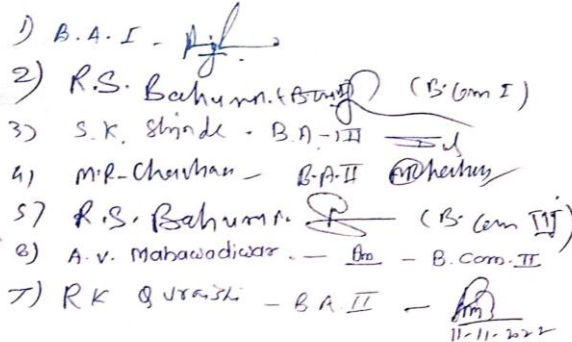 1) B.A.I -
2) R.S. Bahurn. (B.Com I)
3) S.K. Shinde - B.A-III
4) M.R-Chavhan - B-A.II
5) R.S. Bahurn. (B.Com III)
6) A.V. Mahawadiwar. - - B.Com.II
7) RK Quraishi - B.A.II -
11-11-2022